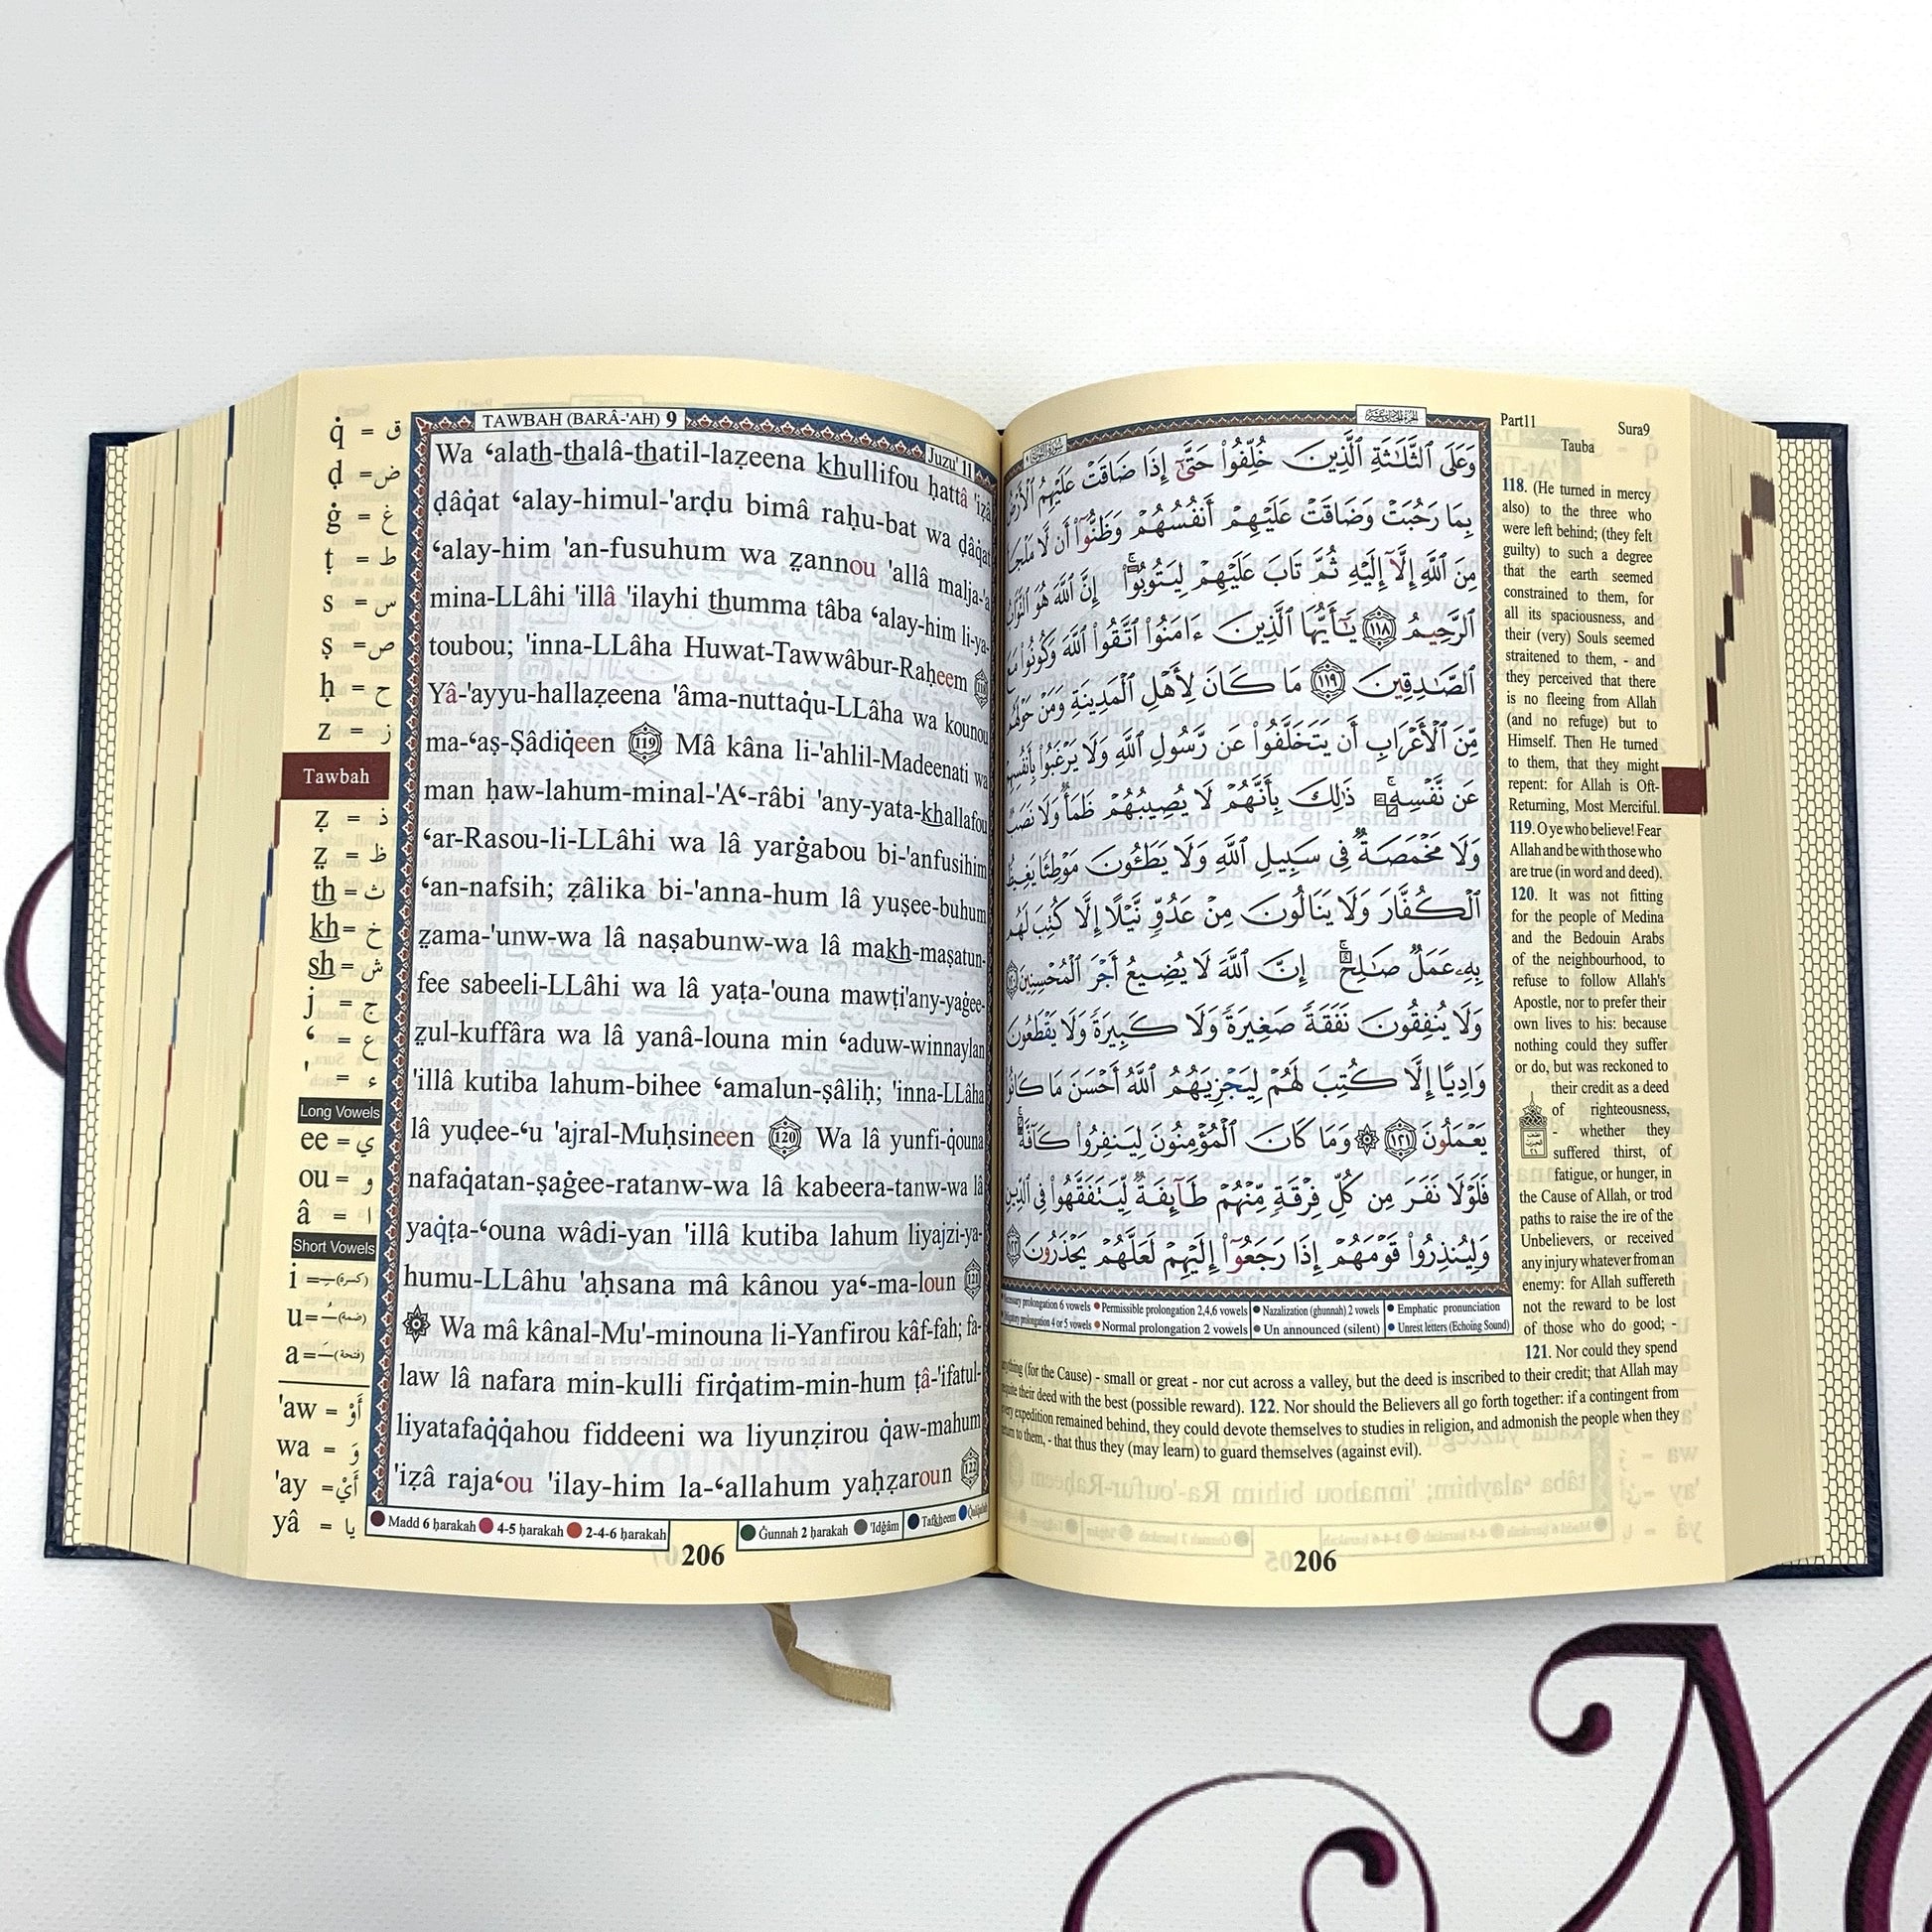 q̇ = ق
ḍ = ض
ġ = غ
ṭ = ط
s = س
ṣ = ص
ḥ = ح
z = ز
Tawbah
ẓ = ذ
ẓ = ظ
th = ث
kh = خ
sh = ش
j = ج
‘ = ع
' = ء
Long Vowels
ee = ي
ou = و
â = ا
Short Vowels
i = (كسرة)
u = (ضمة)
a = (فتحة)
'aw = أَوْ
wa = وَ
'ay = أَيْ
yâ = يا
TAWBAH (BARÂ-'AH) 9
Juzu' 11
Wa ‘alath-thalâ-thatil-laẓeena khullifou ḥattâ 'iẓâ
ḍâq̇at ‘alay-himul-'arḍu bimâ raḥu-bat wa ḍâq̇at
‘alay-him 'an-fusuhum wa ẓannou 'allâ malja-'a
mina-LLâhi 'illâ 'ilayhi thumma tâba ‘alay-him li-ya-
toubou; 'inna-LLâha Huwat-Tawwâbur-Raḥeem 118
Yâ-'ayyu-hallaẓeena 'âma-nuttaq̇u-LLâha wa kounou
ma-‘aṣ-Ṣâdiq̇een 119 Mâ kâna li-'ahlil-Madeenati wa
man ḥaw-lahum-minal-'A‘-râbi 'any-yata-khallafou
‘ar-Rasou-li-LLâhi wa lâ yarġabou bi-'anfusihim
‘an-nafsih; ẓâlika bi-'anna-hum lâ yuṣee-buhum
ẓama-'unw-wa lâ naṣabunw-wa lâ makh-maṣatun-
fee sabeeli-LLâhi wa lâ yaṭa-'ouna mawṭi'any-yaġee-
ẓul-kuffâra wa lâ yanâ-louna min ‘aduw-winnaylan
'illâ kutiba lahum-bihee ‘amalun-ṣâliḥ; 'inna-LLâha
lâ yuḍee-‘u 'ajral-Muḥsineen 120 Wa lâ yunfi-q̇ouna
nafaq̇atan-ṣaġee-ratanw-wa lâ kabeera-tanw-wa lâ
yaq̇ṭa-‘ouna wâdi-yan 'illâ kutiba lahum liyajzi-ya-
humu-LLâhu 'aḥsana mâ kânou ya‘-ma-loun 121
۞ Wa mâ kânal-Mu'-minouna li-Yanfirou kâf-fah; fa-
law lâ nafara min-kulli firq̇atim-min-hum ṭâ-'ifatul-
liyatafaq̇q̇ahou fiddeeni wa liyunẓirou q̇aw-mahum
'iẓâ raja‘ou 'ilay-him la-‘allahum yaḥẓaroun 122
Madd 6 ḥarakah 4-5 ḥarakah 2-4-6 ḥarakah
Ġunnah 2 ḥarakah 'Idġâm Tafkheem Q̇alq̇alah
206
وَعَلَى ٱلثَّلَٰثَةِ ٱلَّذِينَ خُلِّفُوا۟ حَتَّىٰٓ إِذَا ضَاقَتْ عَلَيْهِمُ ٱلْأَرْضُ
بِمَا رَحُبَتْ وَضَاقَتْ عَلَيْهِمْ أَنفُسُهُمْ وَظَنُّوٓا۟ أَن لَّا مَلْجَأَ
مِنَ ٱللَّهِ إِلَّآ إِلَيْهِ ثُمَّ تَابَ عَلَيْهِمْ لِيَتُوبُوٓا۟ ۚ إِنَّ ٱللَّهَ هُوَ ٱلتَّوَّابُ
ٱلرَّحِيمُ ١١٨ يَٰٓأَيُّهَا ٱلَّذِينَ ءَامَنُوا۟ ٱتَّقُوا۟ ٱللَّهَ وَكُونُوا۟ مَعَ
ٱلصَّٰدِقِينَ ١١٩ مَا كَانَ لِأَهْلِ ٱلْمَدِينَةِ وَمَنْ حَوْلَهُم
مِّنَ ٱلْأَعْرَابِ أَن يَتَخَلَّفُوا۟ عَن رَّسُولِ ٱللَّهِ وَلَا يَرْغَبُوا۟ بِأَنفُسِهِمْ
عَن نَّفْسِهِۦ ۚ ذَٰلِكَ بِأَنَّهُمْ لَا يُصِيبُهُمْ ظَمَأٌ وَلَا نَصَبٌ
وَلَا مَخْمَصَةٌ فِى سَبِيلِ ٱللَّهِ وَلَا يَطَـُٔونَ مَوْطِئًا يَغِيظُ
ٱلْكُفَّارَ وَلَا يَنَالُونَ مِنْ عَدُوٍّ نَّيْلًا إِلَّا كُتِبَ لَهُم
بِهِۦ عَمَلٌ صَٰلِحٌ ۚ إِنَّ ٱللَّهَ لَا يُضِيعُ أَجْرَ ٱلْمُحْسِنِينَ ١٢٠
وَلَا يُنفِقُونَ نَفَقَةً صَغِيرَةً وَلَا كَبِيرَةً وَلَا يَقْطَعُونَ
وَادِيًا إِلَّا كُتِبَ لَهُمْ لِيَجْزِيَهُمُ ٱللَّهُ أَحْسَنَ مَا كَانُوا۟
يَعْمَلُونَ ١٢١ ۞ وَمَا كَانَ ٱلْمُؤْمِنُونَ لِيَنفِرُوا۟ كَآفَّةً ۚ
فَلَوْلَا نَفَرَ مِن كُلِّ فِرْقَةٍ مِّنْهُمْ طَآئِفَةٌ لِّيَتَفَقَّهُوا۟ فِى ٱلدِّينِ
وَلِيُنذِرُوا۟ قَوْمَهُمْ إِذَا رَجَعُوٓا۟ إِلَيْهِمْ لَعَلَّهُمْ يَحْذَرُونَ ١٢٢
prolongation 6 vowels Permissible prolongation 2,4,6 vowels Nazalization (ghunnah) 2 vowels Emphatic pronunciation
prolongation 4 or 5 vowels Normal prolongation 2 vowels Un announced (silent) Unrest letters (Echoing Sound)
Part11 Sura9
Tauba
118. (He turned in mercy
also) to the three who
were left behind; (they felt
guilty) to such a degree
that the earth seemed
constrained to them, for
all its spaciousness, and
their (very) Souls seemed
straitened to them, - and
they perceived that there
is no fleeing from Allah
(and no refuge) but to
Himself. Then He turned
to them, that they might
repent: for Allah is Oft-
Returning, Most Merciful.
119. O ye who believe! Fear
Allah and be with those who
are true (in word and deed).
120. It was not fitting
for the people of Medina
and the Bedouin Arabs
of the neighbourhood, to
refuse to follow Allah's
Apostle, nor to prefer their
own lives to his: because
nothing could they suffer
or do, but was reckoned to
their credit as a deed
of righteousness,
- whether they
suffered thirst, of
fatigue, or hunger, in
the Cause of Allah, or trod
paths to raise the ire of the
Unbelievers, or received
any injury whatever from an
enemy: for Allah suffereth
not the reward to be lost
of those who do good; -
121. Nor could they spend
anything (for the Cause) - small or great - nor cut across a valley, but the deed is inscribed to their credit; that Allah may
requite their deed with the best (possible reward). 122. Nor should the Believers all go forth together: if a contingent from
every expedition remained behind, they could devote themselves to studies in religion, and admonish the people when they
return to them, - that thus they (may learn) to guard themselves (against evil).
206
M